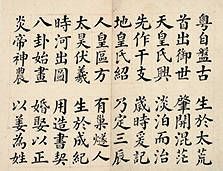 粵自盤古 生於太荒
首出御世 肇開混茫
天皇氏興 淡泊而治
先作干支 歲時爰記
地皇氏紹 乃定三辰
人皇區方 有巢燧人
太昊伏羲 生於成紀
時河出圖 用造書契
八卦始畫 婚娶以正
炎帝神農 以姜為姓